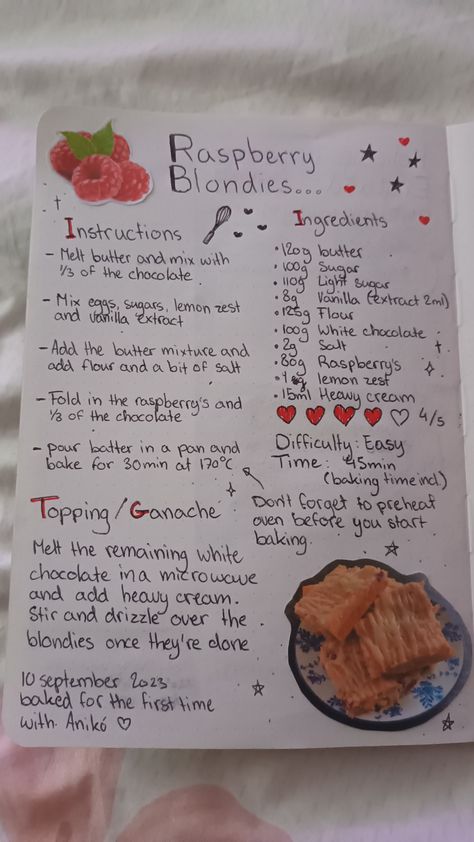 Raspberry
Blondies...
Instructions
- Melt butter and mix with
1/3 of the chocolate.
- Mix eggs, sugars, lemon zest
and vanilla extract
- Add the butter mixture and
add flour and a bit of salt
- Fold in the raspberry's and
1/3 of the chocolate
- pour batter in a pan and
bake for 30min at 170°C
Topping/Ganache
Melt the remaining white
chocolate in a microwave
and add heavy cream.
Stir and drizzle over the
blondies once they're done
10 september 2023
baked for the first time
with Anikó ♡
Ingredients
• 120g butter
• 100g Sugar
• 110g Light Sugar
• 8g Vanilla (extract 2ml)
• 125g Flour
• 100g White chocolate
• 2g Salt
• 80g Raspberry's
lemon zest
• 15ml Heavy cream
4/5
Difficulty: Easy
Time: 45min
(baking time incl.)
Don't forget to preheat
oven before you start
baking.